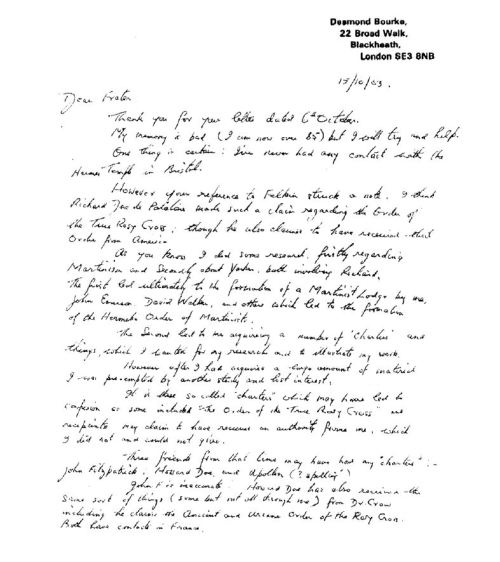 Desmond Bourke,
22 Broad Walk,
Blackheath,
London SE3 8NB
15/10/03.
Dear Frater
Thank you for your letter dated 6th October.
My memory is bad (I am now over 85) but I will try and help.
One thing is certain: I've never had any contact with the
Hermes Temple in Bristol.
However your reference to Felkin struck a note. I think
Richard Duc de Palatine made such a claim regarding the Order of
the True Rosy Cross; though he also claims to have received that
Order from America
As you know I did some research, firstly regarding
Martinism and Secondly about Yarker, both involving Richard.
The first led ultimately to the formation of a Martinist Lodge by me,
John Emerson David Walker, and others which led to the formation
of the Hermetic Order of Martinists.
The Second led to me acquiring a number of "Charters" and
things, which I wanted for my research and to illustrate my work.
However after I had acquired a large amount of material
I was pre-empted by another study and lost interest.
It is these so called "charters" which may have led to
confusion as some included "the Order of the True Rosy Cross" and
recipients may claim to have received an authority from me, which
I did not and could not give.
Three friends from that time may have had my "charters" :-
John Fitzpatrick, Howard Doe, and Apollon (? spelling)
John F is inaccurate. Howard Doe has also received the
same sort of things (some but not all through me) from Dr. Crow
including he claims the Ancient and Arcane Order of the Rosy Cross.
Both have contacts in France.